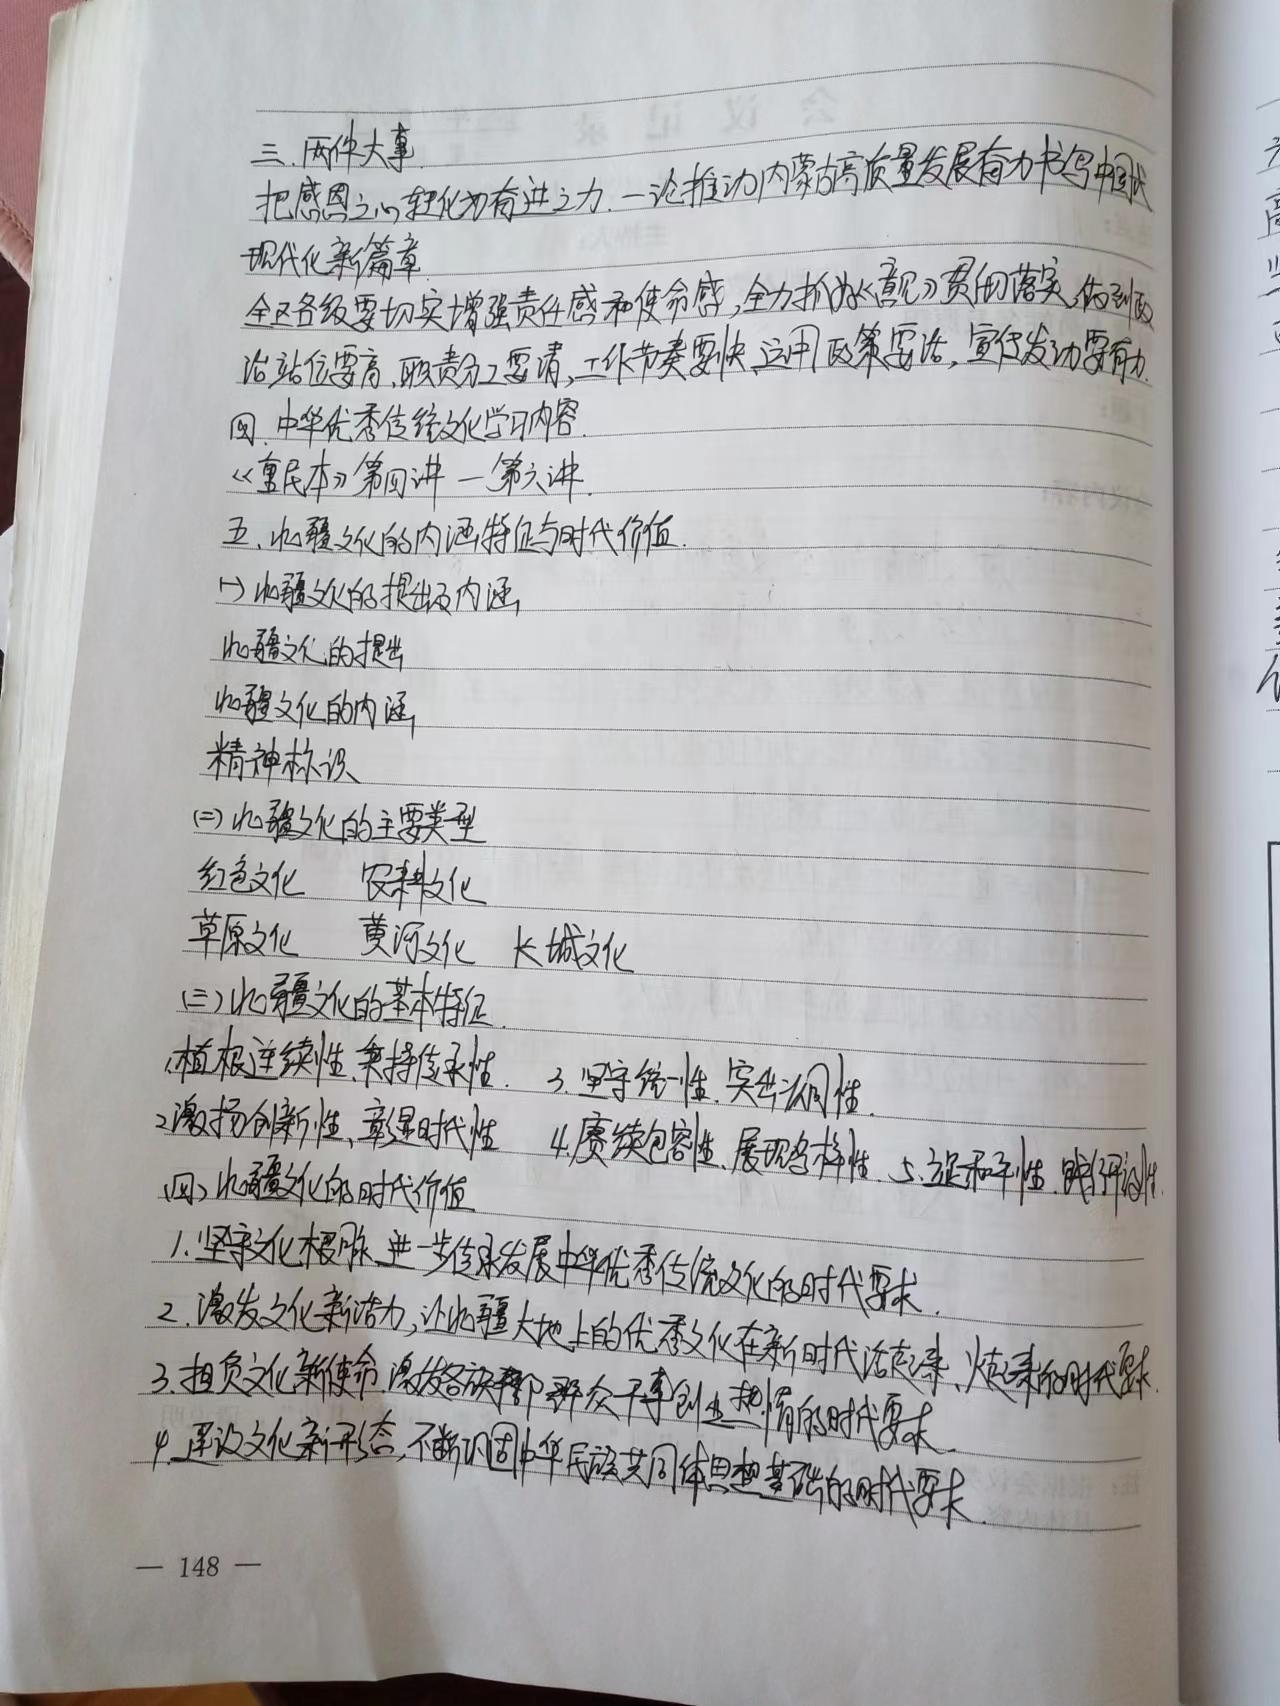 三、两件大事
把感恩之心转化为奋进之力.一论推动内蒙古高质量发展奋力书写中国式
现代化新篇章
全区各级要切实增强责任感和使命感,全力抓好《意见》贯彻落实,做到政
治站位要高、职责分工要清,工作节奏要快,运用政策要活,宣传发动要有力.
四、中华优秀传统文化学习内容.
《重民本》第四讲—第六讲.
五、北疆文化的内涵特征与时代价值.
(一)北疆文化的提出及内涵
北疆文化的提出
北疆文化的内涵
精神标识
(二)北疆文化的主要类型
红色文化 农耕文化
草原文化 黄河文化 长城文化
(三)北疆文化的基本特征.
1.植根连续性、秉持传承性. 3.坚守统一性、突出认同性.
2.激扬创新性、彰显时代性 4.赓续包容性、展现多样性. 5.立足和平性、践行
(四)北疆文化的时代价值
1.坚守文化根脉、进一步传承发展中华优秀传统文化的时代要求.
2.激发文化新活力,让北疆大地上的优秀文化在新时代活起来、火起来的时代要求.
3.担负文化新使命.激发各族干部群众干事创业热情的时代要求.
4.建设文化新形态,不断巩固中华民族共同体思想基础的时代要求.
— 148 —
会议记录